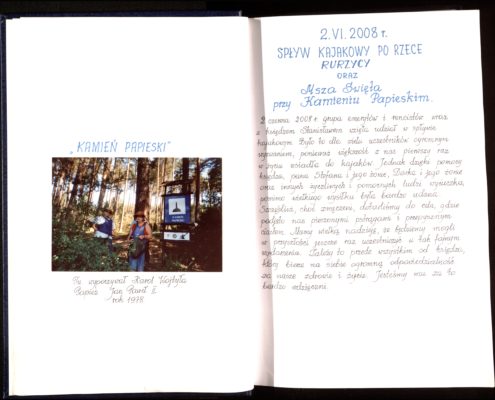 „KAMIEŃ PAPIESKI”
Tu wypoczywał Karol Wojtyła
Papież Jan Paweł II
rok 1978
2.VI.2008 r.
SPŁYW KAJAKOWY PO RZECE
RURZYCY
ORAZ
Msza Święta
przy Kamieniu Papieskim.
2 czerwca 2008 r grupa emerytów i rencistów wraz
z księdzem Stanisławem wzięła udział w spływie
kajakowym. Było to dla wielu uczestników ogromnym
wyzwaniem, ponieważ większość z nas pierwszy raz
w życiu wsiadła do kajaków. Jednak dzięki pomocy
księdza, pana Stefana i jego żonie, Darka i jego żonie
oraz innych życzliwych i pomocnych ludzi wycieczka,
pomimo wielkiego wysiłku była bardzo udana.
Szczęśliwi, choć zmęczeni, dotarliśmy do celu, gdzie
podjęto nas pieczonymi pstrągami i przepysznym
ciastem. Mamy wielką nadzieję, że będziemy mogli
w przyszłości jeszcze raz uczestniczyć w tak fajnym
wydarzeniu. Zależy to przede wszystkim od księdza,
który bierze na siebie ogromną odpowiedzialność
za nasze zdrowie i życie. Jesteśmy mu za to
bardzo wdzięczni.